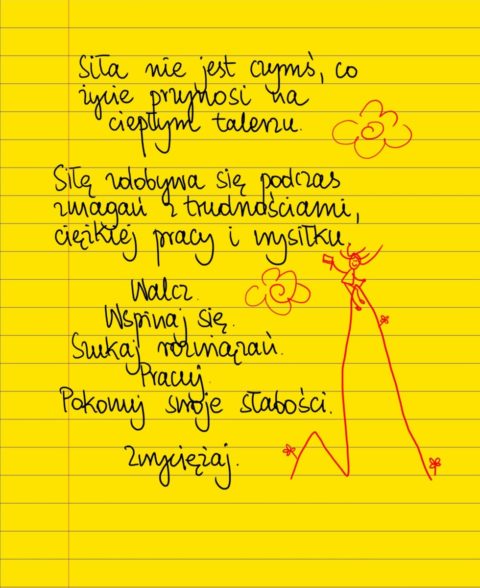 Siła nie jest czymś, co
życie przynosi na
ciepłym talerzu.
Siłę zdobywa się podczas
zmagań z trudnościami,
ciężkiej pracy i wysiłku.
Walcz.
Wspinaj się.
Szukaj rozwiązań.
Pracuj.
Pokonuj swoje słabości.
Zwyciężaj.